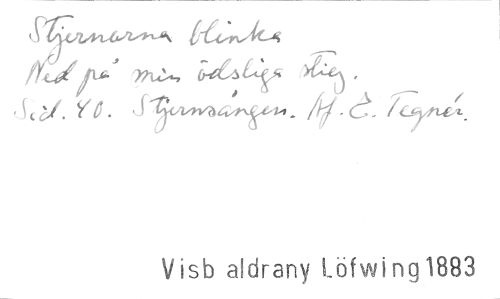 Stjernorna blinka
Ned på min ödsliga stig.
Sid. 40. Stjernsången. Af. E. Tegnér.
Visb aldrany Löfwing 1883